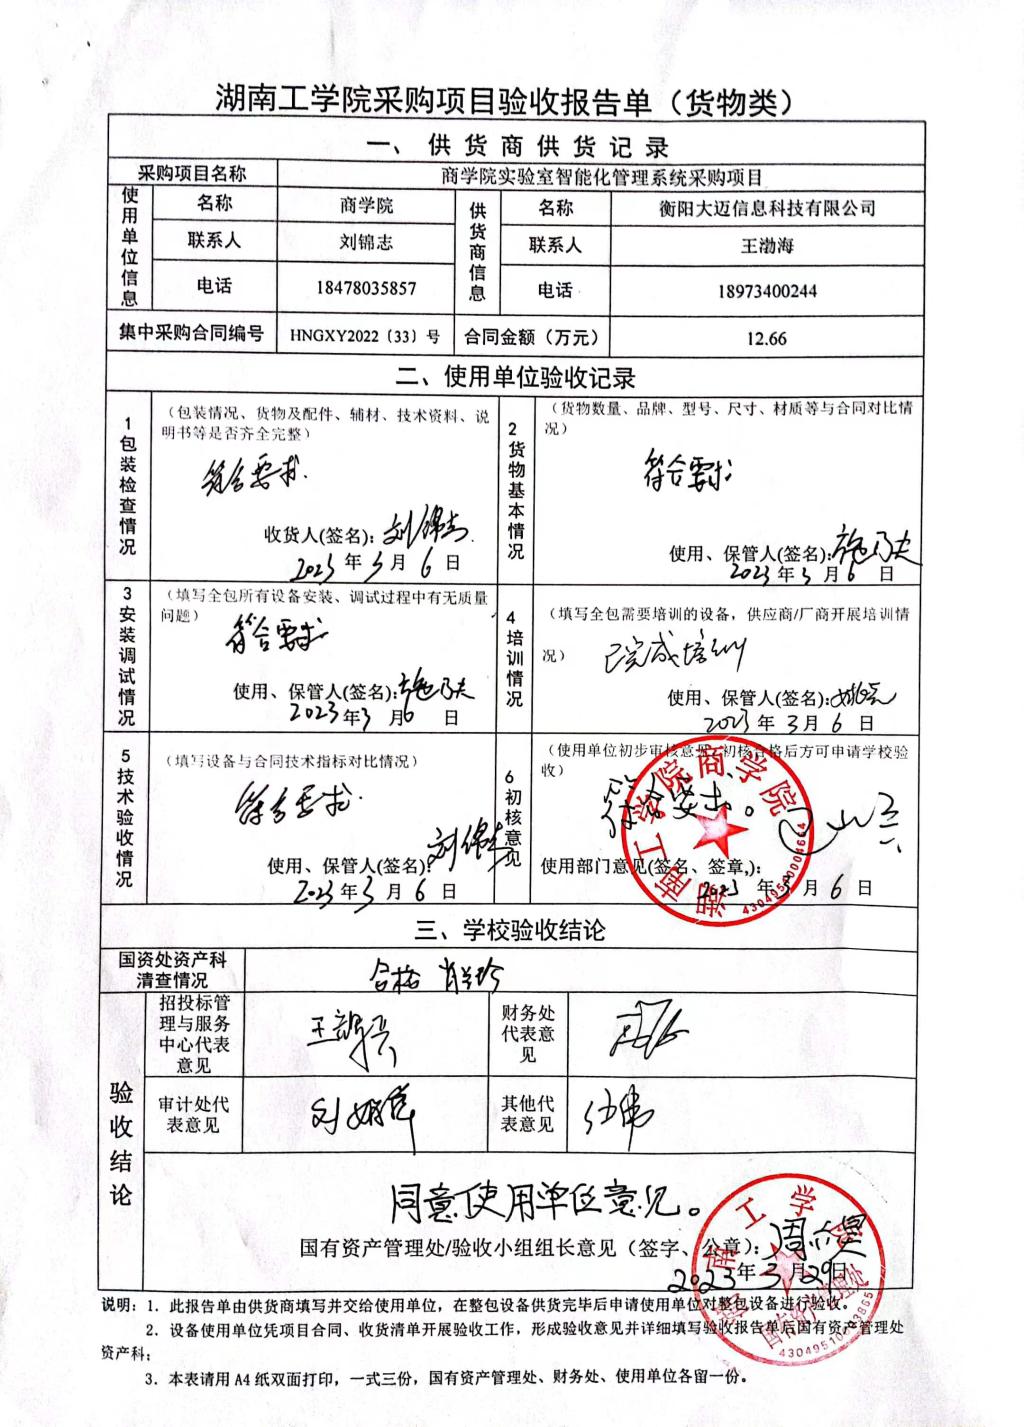 湖南工学院采购项目验收报告单（货物类）
一、供货商供货记录
采购项目名称 商学院实验室智能化管理系统采购项目
使用单位信息 名称 商学院 供货商信息 名称 衡阳大迈信息科技有限公司
联系人 刘锦志 联系人 王渤海
电话 18478035857 电话 18973400244
集中采购合同编号 HNGXY2022〔33〕号 合同金额（万元） 12.66
二、使用单位验收记录
1包装检查情况
（包装情况、货物及配件、辅材、技术资料、说
明书等是否齐全完整）
符合要求.
收货人(签名): 刘锦志.
2023年3月6日
2货物基本情况
（货物数量、品牌、型号、尺寸、材质等与合同对比情
况）
符合要求
使用、保管人(签名):
2023年3月6日
3安装调试情况
（填写全包所有设备安装、调试过程中有无质量
问题）
符合要求.
使用、保管人(签名):
2023年3月6日
4培训情况
（填写全包需要培训的设备，供应商/厂商开展培训情
况）
已完成培训
使用、保管人(签名):
2023年3月6日
5技术验收情况
（填写设备与合同技术指标对比情况）
符合要求.
使用、保管人(签名): 刘锦志
2023年3月6日
6初核意见
（使用单位初步审核意见，初核合格后方可申请学校验
收）
符合要求。
使用部门意见(签名、签章,):
2023年3月6日
湖南工学院商学院
43049510004664
三、学校验收结论
国资处资产科
清查情况
合格
验收结论
招投标管
理与服务
中心代表
意见
财务处
代表意
见
审计处代
表意见
其他代
表意见
伍伟
同意使用单位意见。
国有资产管理处/验收小组组长意见（签字、公章）:
2023年3月29日
湖南工学院
国有资产管理处
说明：1．此报告单由供货商填写并交给使用单位，在整包设备供货完毕后申请使用单位对整包设备进行验收。
2．设备使用单位凭项目合同、收货清单开展验收工作，形成验收意见并详细填写验收报告单后国有资产管理处
资产科;
3．本表请用A4纸双面打印，一式三份，国有资产管理处、财务处、使用单位各留一份。